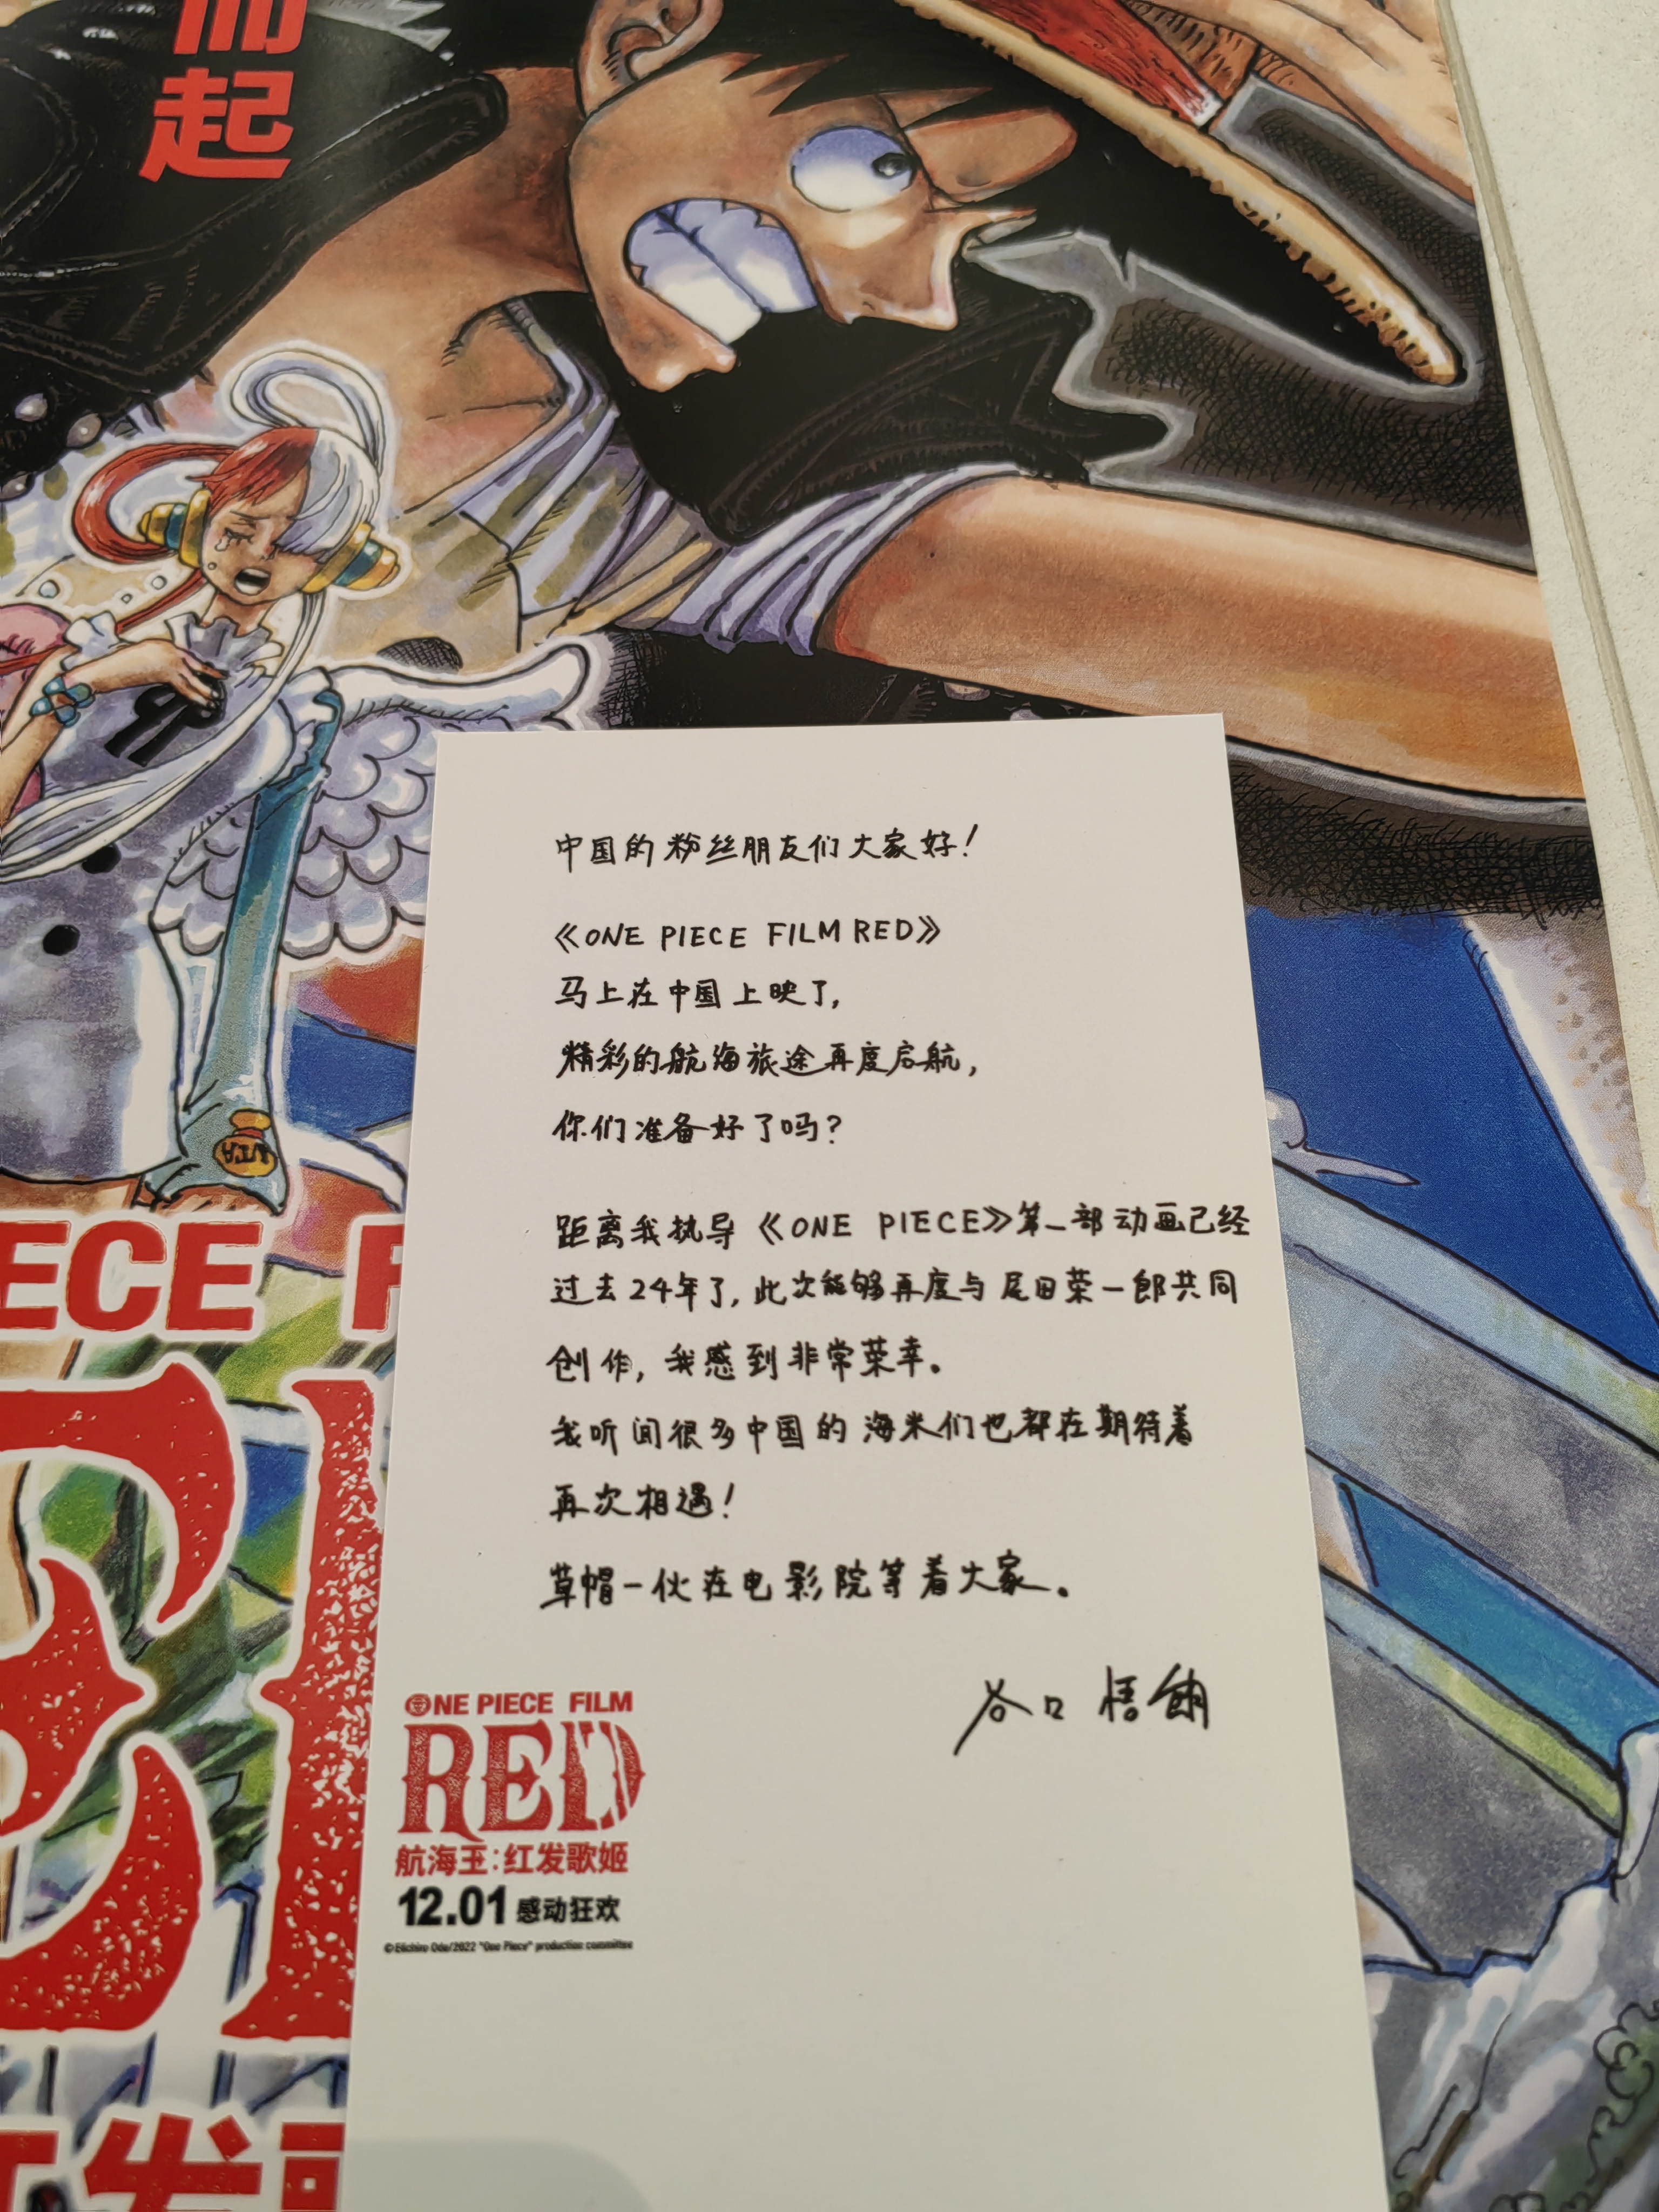 而
起
中国的粉丝朋友们大家好！
《ONE PIECE FILM RED》
马上在中国上映了，
精彩的航海旅途再度启航，
你们准备好了吗？
距离我执导《ONE PIECE》第一部动画已经
过去24年了，此次能够再度与尾田荣一郎共同
创作，我感到非常荣幸。
我听闻很多中国的海米们也都在期待着
再次相遇！
草帽一伙在电影院等着大家。
谷口悟朗
ONE PIECE FILM
RED
航海王：红发歌姬
12.01 感动狂欢
©Eiichiro Oda/2022 "One Piece" production committee
UTA
ECE F
发